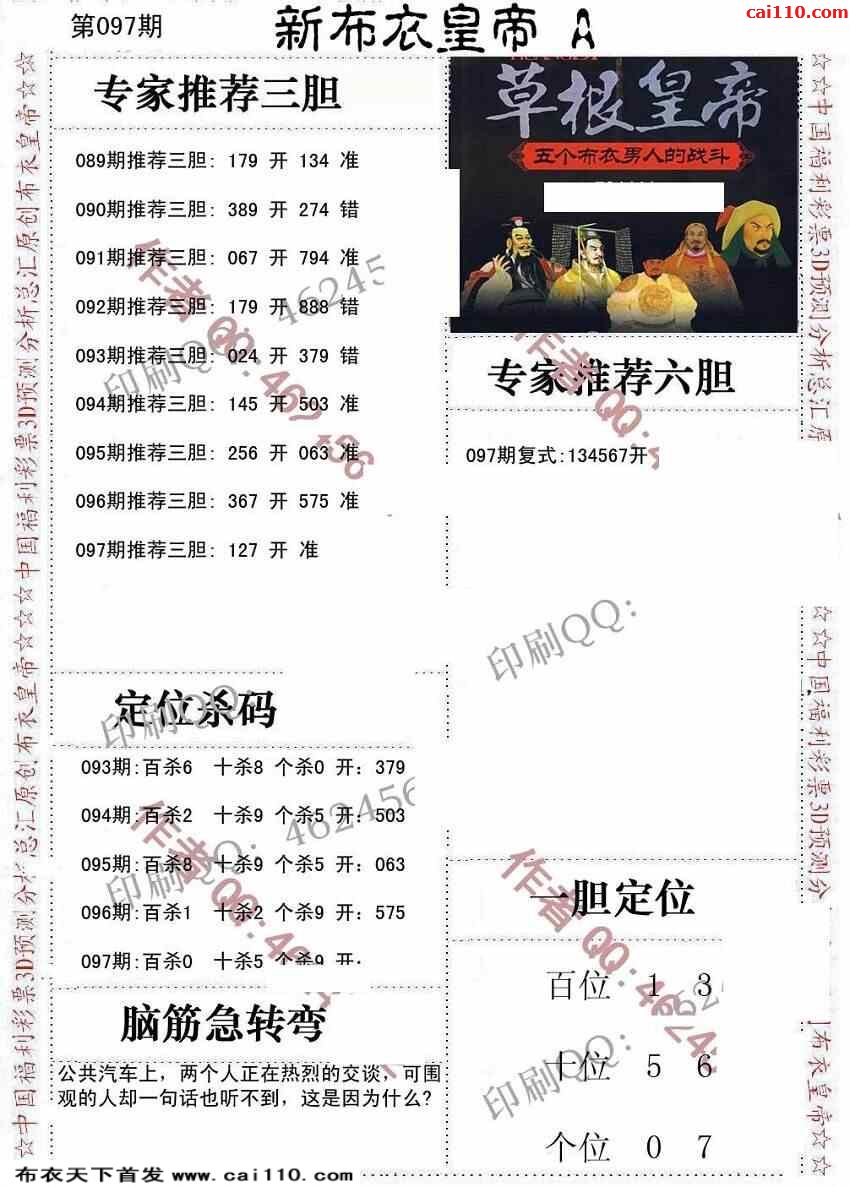 cai110.com
第097期
新布衣皇帝 A
专家推荐三胆
089期推荐三胆: 179 开 134 准
090期推荐三胆: 389 开 274 错
091期推荐三胆: 067 开 794 准
092期推荐三胆: 179 开 888 错
093期推荐三胆: 024 开 379 错
094期推荐三胆: 145 开 503 准
095期推荐三胆: 256 开 063 准
096期推荐三胆: 367 开 575 准
097期推荐三胆: 127 开 准
草根皇帝
五个布衣男人的战斗
专家推荐六胆
097期复式:134567开
定位杀码
093期:百杀6 十杀8 个杀0 开: 379
094期:百杀2 十杀9 个杀5 开: 503
095期:百杀8 十杀9 个杀5 开: 063
096期:百杀1 十杀2 个杀9 开: 575
097期:百杀0 十杀5 个杀9 开:
一胆定位
百位 1 3
十位 5 6
个位 0 7
脑筋急转弯
公共汽车上，两个人正在热烈的交谈，可围
观的人却一句话也听不到，这是因为什么?
布衣天下首发 www.cai110.com
☆中国福利彩票3D预测分析总汇原创布衣皇帝☆☆☆中国福利彩票3D预测分析总汇原创布衣皇帝☆☆
☆☆中国福利彩票3D预测分析总汇原
☆☆中国福利彩票3D预测分
布衣皇帝☆☆
作者QQ:462456
印刷QQ: 462456
印刷QQ:
作者QQ:
印刷QQ:
作者QQ:46245
印刷QQ: 462456
作者QQ:46245
印刷QQ: